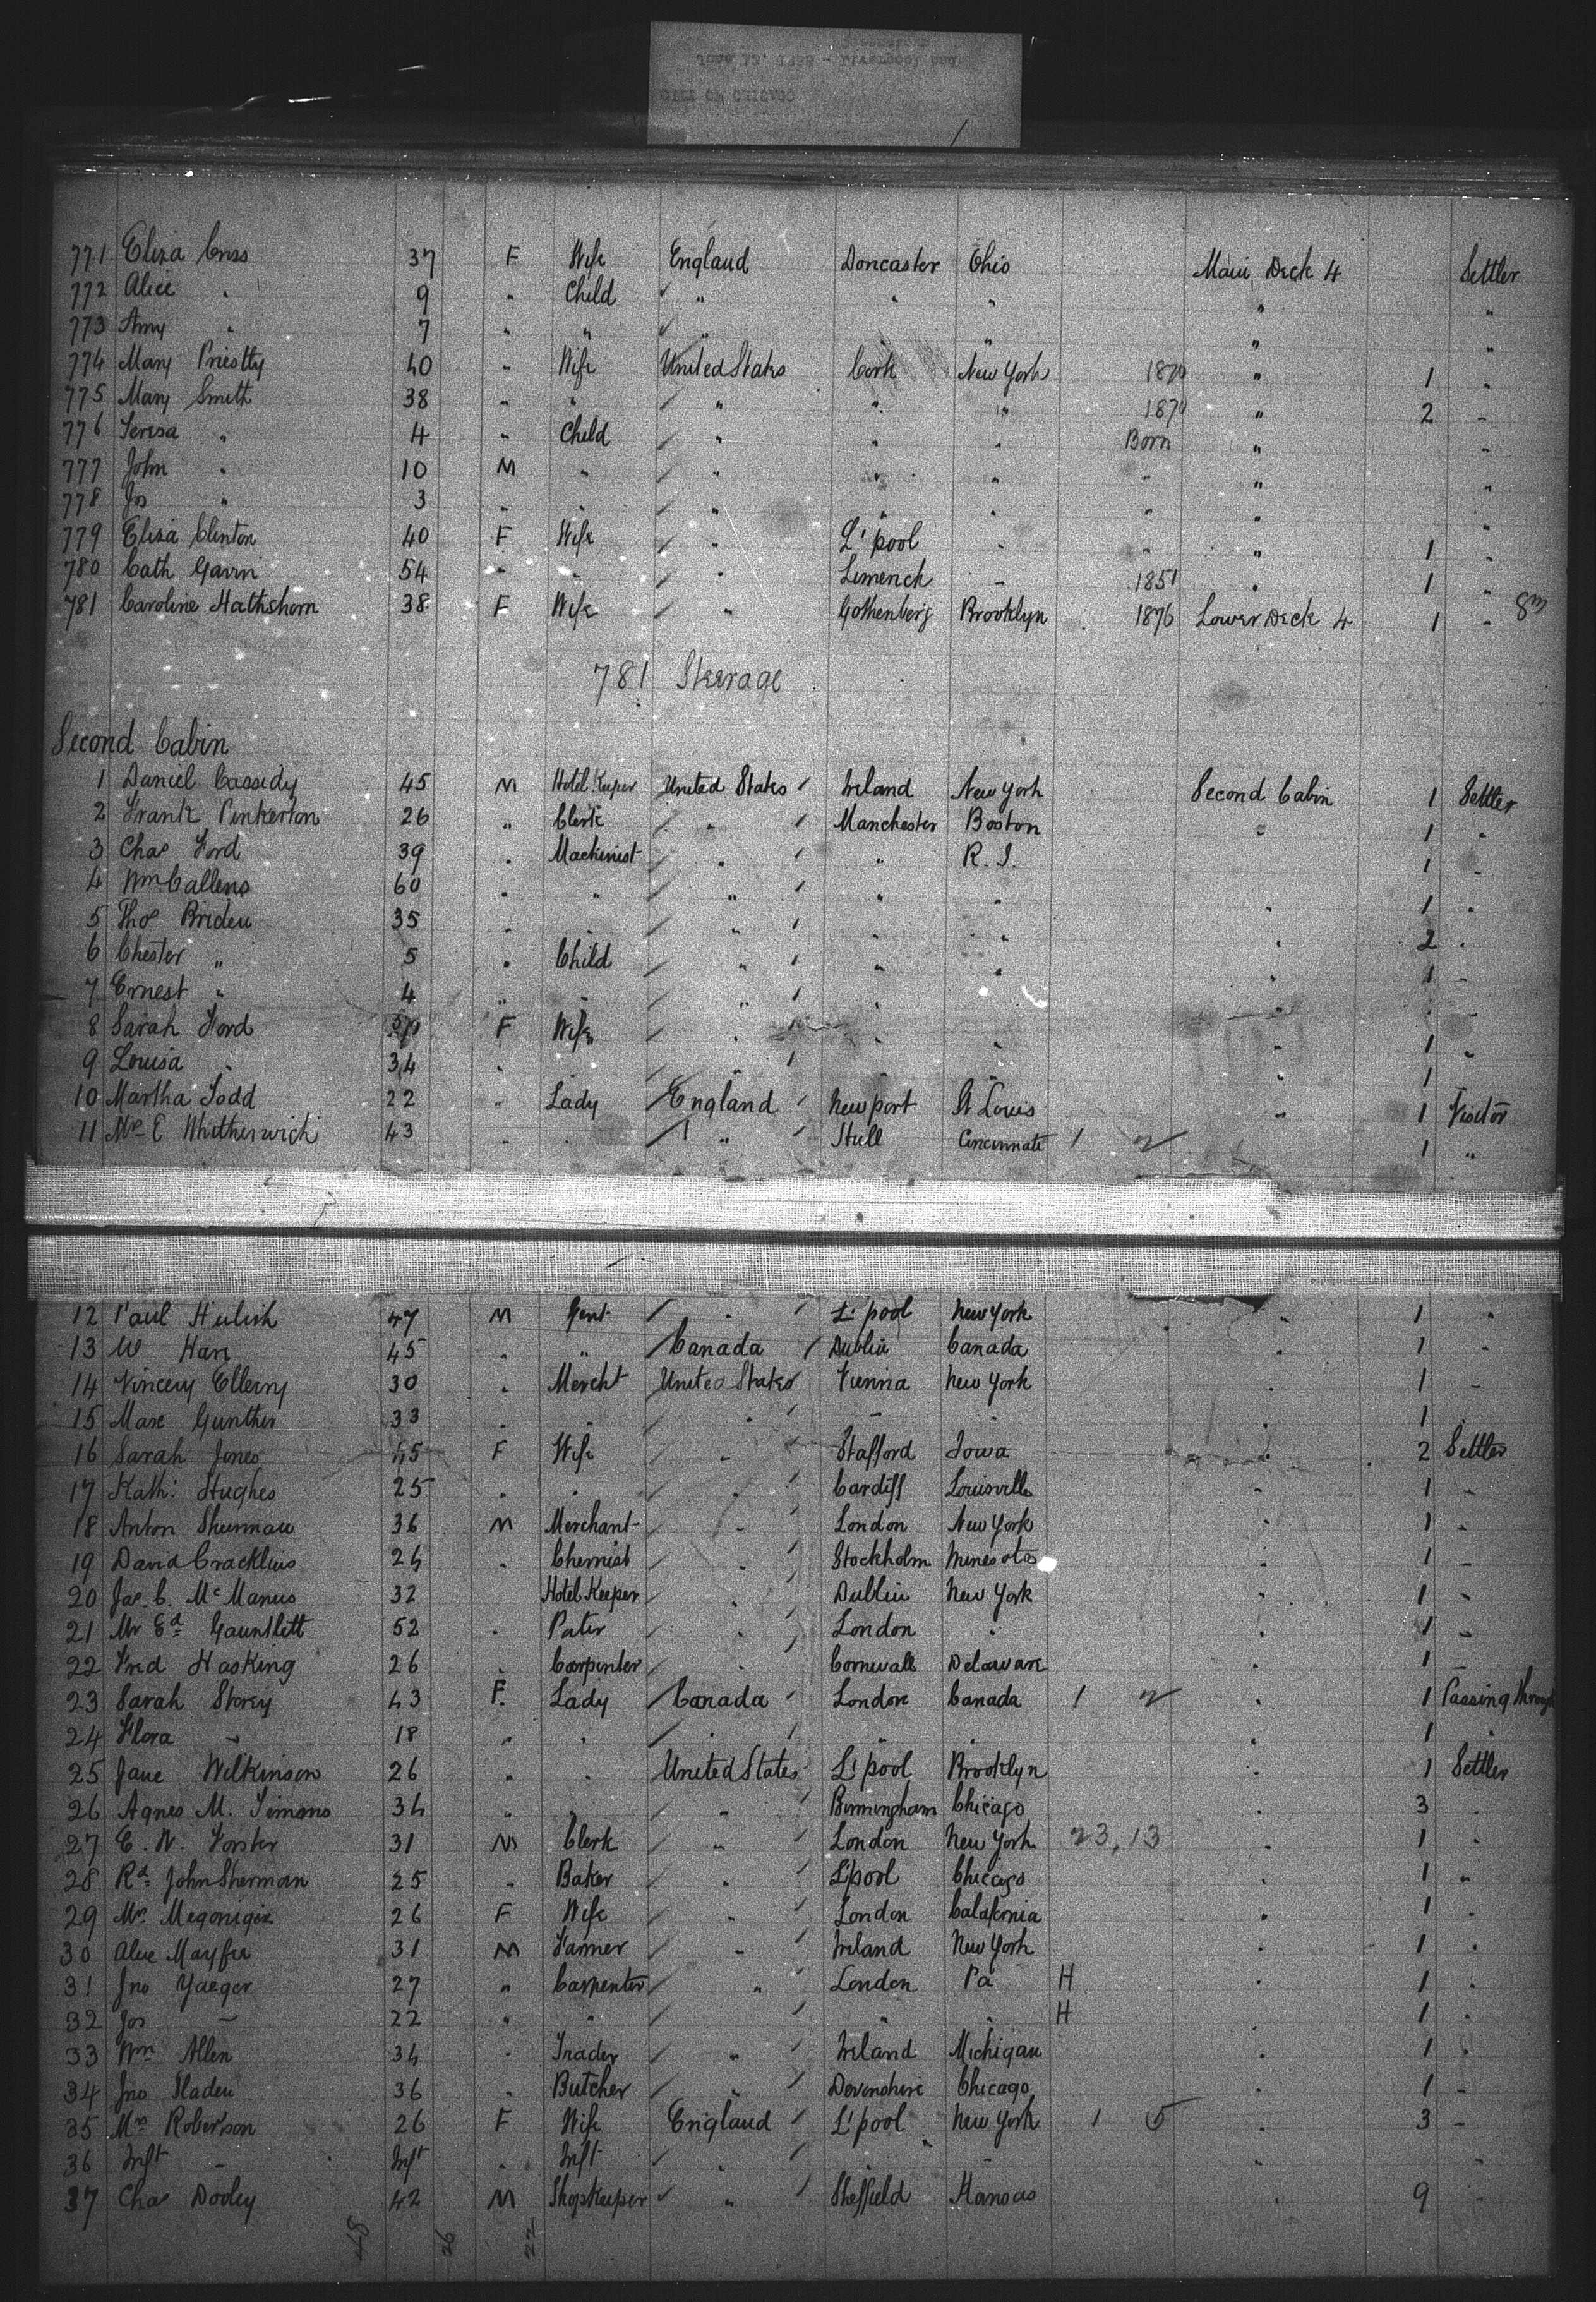 771 Eliza Cross 37 F Wife England Doncaster Ohio Main Deck 4 Settler
772 Alice " 9 " Child " " " " "
773 Amy " 7 " " " " " "
774 Mary Priestly 40 " Wife United States Cork New York 1870 " 1 "
775 Mary Smith 38 " " " " " 1870 " 2 "
776 Teresa " 4 " Child " " " Born " "
777 John " 10 M " " " " " " "
778 Jos " 3 " " " " " " " "
779 Eliza Clinton 40 F Wife " L'pool " " " 1 "
780 Cath Gavin 54 " " " Limerick " 1851 " 1 "
781 Caroline Hathshorn 38 F Wife " Gothenberg Brooklyn 1876 Lower Deck 4 1 " 8m
781 Steerage
Second Cabin
1 Daniel Cassidy 45 M Hotel Keeper United States Ireland New York Second Cabin 1 Settler
2 Frank Pinkerton 26 " Clerk " Manchester Boston " 1 "
3 Chas Ford 39 " Machinist " " R. I. 1 "
4 Wm Callens 60 " " " " " " 1 "
5 Thos Brideu 35 " " " " " " 2 "
6 Chester " 5 " Child " " " " 1 "
7 Ernest " 4 " " " " "
8 Sarah Ford F Wife " " " " 1 "
9 Louisa " 34 " " " " " 1
10 Martha Todd 22 " Lady England Newport St Louis " 1 Visitor
11 Mrs E Whitherwich 43 " " " Hull Cincinnati 1 2 1 "
12 Paul Hulish 47 M Gent " L'pool New York " 1 "
13 W Hare 45 " " Canada Dublin Canada " 1 "
14 Vincery Ellerny 30 " Mercht United States Vienna New York " 1 "
15 Max Gunther 33 " " " " " " 1 "
16 Sarah Jones 45 F Wife " Stafford Iowa " 2 Settler
17 Kath: Hughes 25 " " " Cardiff Louisville " 1 "
18 Anton Shurman 36 M Merchant " London New York " 1 "
19 David Cracklius 24 " Chemist " Stockholm Minesota " 1 "
20 Jas. C. McManus 32 Hotel Keeper " Dublin New York " 1 "
21 Mr Ed Gauntlett 52 " Pater " London " " 1 "
22 Fred Hasking 26 " Carpenter " Cornwall Delaware " 1 "
23 Sarah Storey 43 F. Lady Canada London Canada 1 2 " 1 Passing through
24 Flora " 18 " " " " " " 1 "
25 Jane Wilkinson 26 " " United States L'pool Brooklyn " 1 Settler
26 Agnes M. Timmons 34 " " " Birmingham Chicago " 3 "
27 E. W. Forster 31 M Clerk " London New York 23, 13 " 1 "
28 Rd John Sherman 25 " Baker " L'pool Chicago " 1 "
29 Mrs Megonigie 26 F Wife " London Calafornia " 1 "
30 Alex Mayfer 31 M Farmer " Ireland New York " 1 "
31 Jno Yaeger 27 " Carpenter " London Pa H " 1 "
32 Jos — 22 " " " " H " 1 "
33 Wm Allen 34 " Trader " Ireland Michigan " 1 "
34 Jno Sladen 36 " Butcher " Devonshire Chicago " 1 "
35 Mrs Roberson 26 F Wife England L'pool New York 1 5 " 3 "
36 Inft " Inft " Inft " " " " "
37 Chas Dooley 42 M Shopkeeper " Sheffield Kansas " 9 "
48 26 22